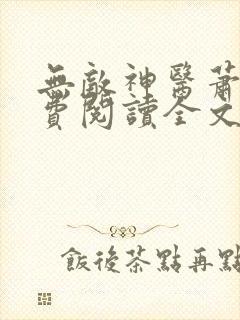 無敵神醫蕭
費閱讀全文
飯後茶點再點